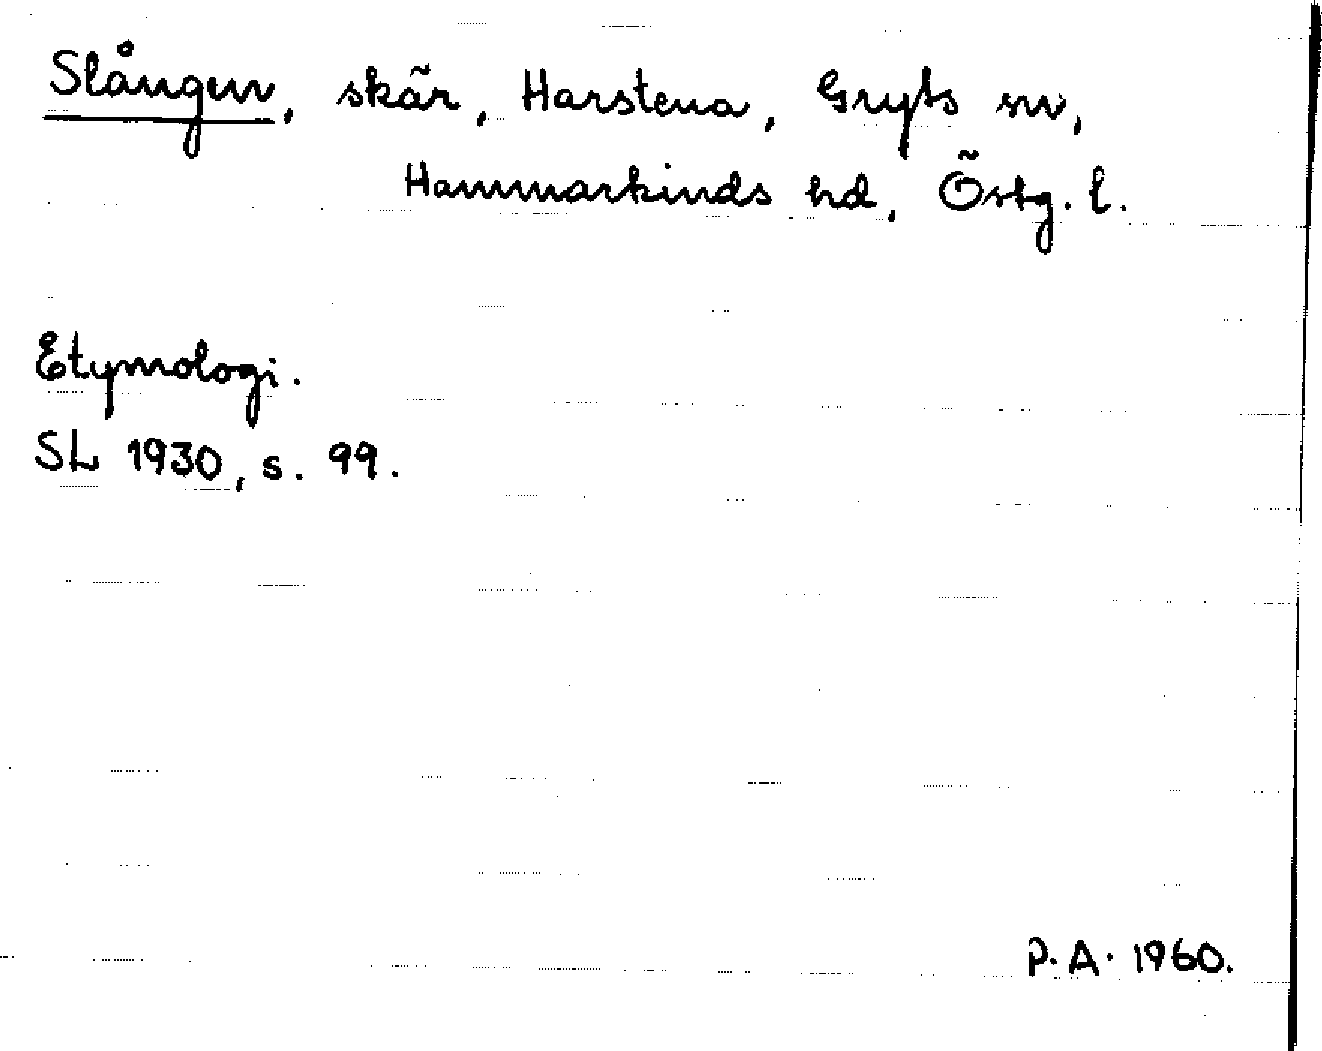 Slången, skär, Harstena, Gryts sn,
Hammarkinds hd, Östg. l.
Etymologi.
SL 1930, s. 99.
P.A. 1960.